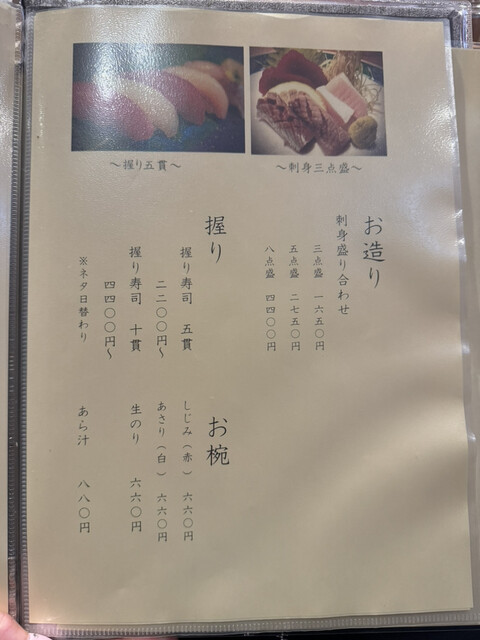 ～握り五貫～
～刺身三点盛～
お造り
刺身盛り合わせ
三点盛 一六五〇円
五点盛 二七五〇円
八点盛 四四〇〇円
握り
握り寿司 五貫
二二〇〇円～
握り寿司 十貫
四四〇〇円～
※ネタ日替わり
お椀
しじみ（赤） 六六〇円
あさり（白） 六六〇円
生のり 六六〇円
あら汁 八八〇円